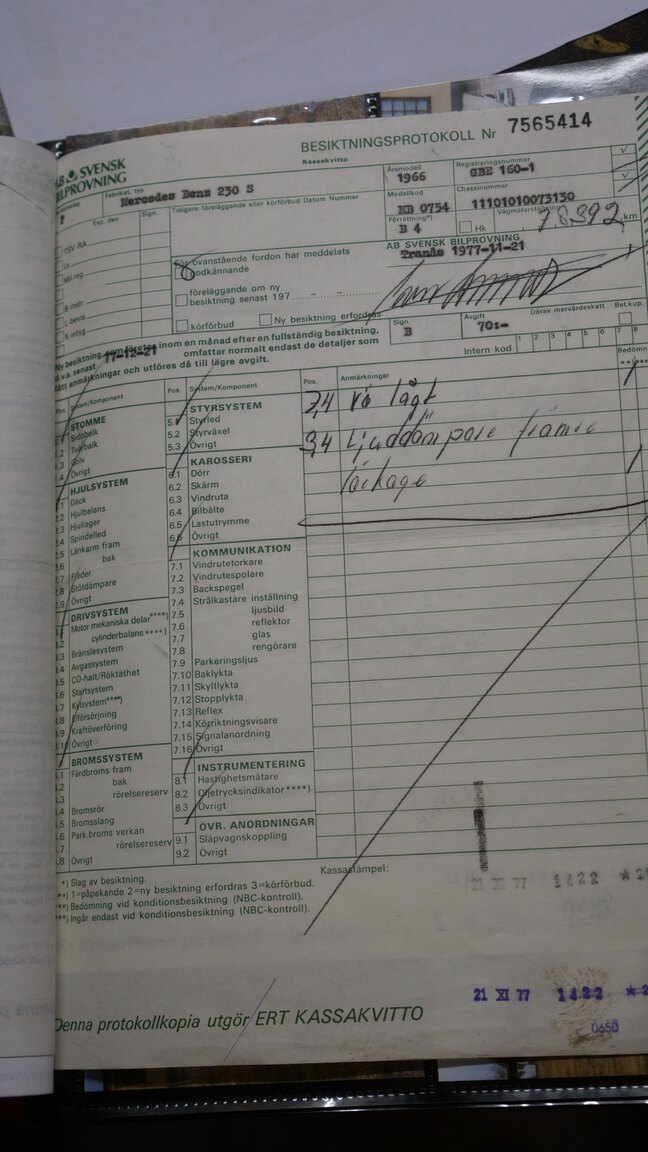 BESIKTNINGSPROTOKOLL Nr 7565414
Kassakvitto
AB SVENSK
BILPROVNING
Fabrikat, typ
Mercedes Benz 230 S
Årsmodell
1966
Registreringsnummer
GBE 160-1
Modellkod
MB 0754
Chassinummer
11101010073130
Förrättning*)
B 4
Hk
Vägmätarställning
km
Exp. den
Sign.
Tidigare föreläggande eller körförbud Datum Nummer
TSV-RA
La
Mil.reg.
B-instr
L-bevis
K-intyg
För ovanstående fordon har meddelats
godkännande
föreläggande om ny
besiktning senast 197
körförbud
Ny besiktning erfordras
AB SVENSK BILPROVNING
Tranås 1977-11-21
Sign.
B
Avgift
70:-
Därav mervärdeskatt
Bet.kup.
Intern kod
1 2 3 4 5 6 7 8
Ny besiktning som företas inom en månad efter en fullständig besiktning,
d.v.s. senast 77-12-21 omfattar normalt endast de detaljer som
fått anmärkningar och utföres då till lägre avgift.
Pos. System/Komponent
Pos. System/Komponent
Pos. Anmärkningar
Bedömn
STOMME
Sidobalk
Tvärbalk
Golv
Övrigt
HJULSYSTEM
Däck
Hjulbalans
Hjullager
Spindelled
Länkarm fram
bak
Fjäder
Stötdämpare
Övrigt
DRIVSYSTEM
Motor mekaniska delar****)
cylinderbalans****)
Bränslesystem
Avgassystem
CO-halt/Röktäthet
Startsystem
Kylsystem****)
Elförsörjning
Kraftöverföring
Övrigt
BROMSSYSTEM
Färdbroms fram
bak
rörelsereserv
Bromsrör
Bromsslang
Park.broms verkan
rörelsereserv
Övrigt
STYRSYSTEM
5.1 Styrled
5.2 Styrväxel
5.3 Övrigt
KAROSSERI
6.1 Dörr
6.2 Skärm
6.3 Vindruta
6.4 Bilbälte
6.5 Lastutrymme
6.6 Övrigt
KOMMUNIKATION
7.1 Vindrutetorkare
7.2 Vindrutespolare
7.3 Backspegel
7.4 Strålkastare inställning
7.5 ljusbild
7.6 reflektor
7.7 glas
7.8 rengörare
7.9 Parkeringsljus
7.10 Baklykta
7.11 Skyltlykta
7.12 Stopplykta
7.13 Reflex
7.14 Körriktningsvisare
7.15 Signalanordning
7.16 Övrigt
INSTRUMENTERING
8.1 Hastighetsmätare
8.2 Oljetrycksindikator****)
8.3 Övrigt
ÖVR. ANORDNINGAR
9.1 Släpvagnskoppling
9.2 Övrigt
lågt
3,4 ljuddämpare främre
läckage
*) Slag av besiktning.
**) 1=påpekande 2=ny besiktning erfordras 3=körförbud.
***) Bedömning vid konditionsbesiktning (NBC-kontroll).
****) Ingår endast vid konditionsbesiktning (NBC-kontroll).
Kassastämpel:
21 XI 77 1422
21 XI 77 1422
Denna protokollkopia utgör ERT KASSAKVITTO
0650